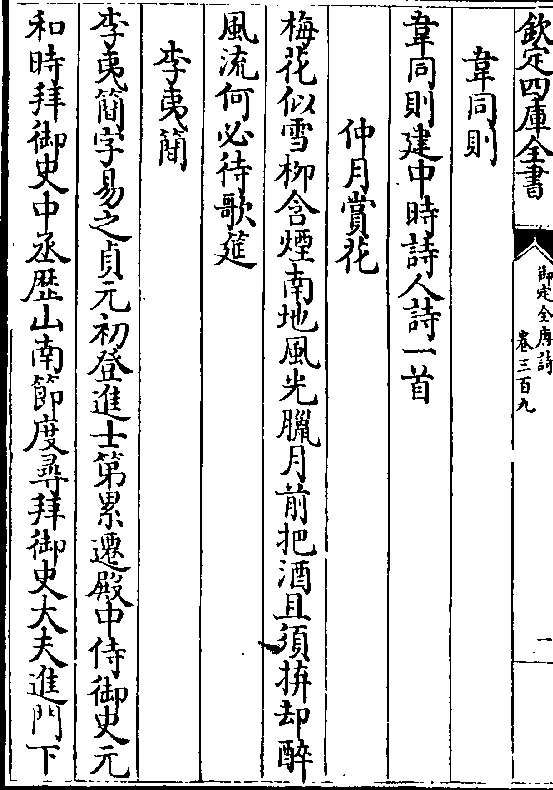 欽定四庫全書
御定全唐詩
卷三百九
一
韋同則
韋同則建中時詩人詩一首
仲月賞花
梅花似雪柳含煙南地風光臘月前把酒且須拚却醉
風流何必待歌筵
李夷簡
李夷簡字易之貞元初登進士第累遷殿中侍御史元
和時拜御史中丞歴山南節度尋拜御史大夫進門下